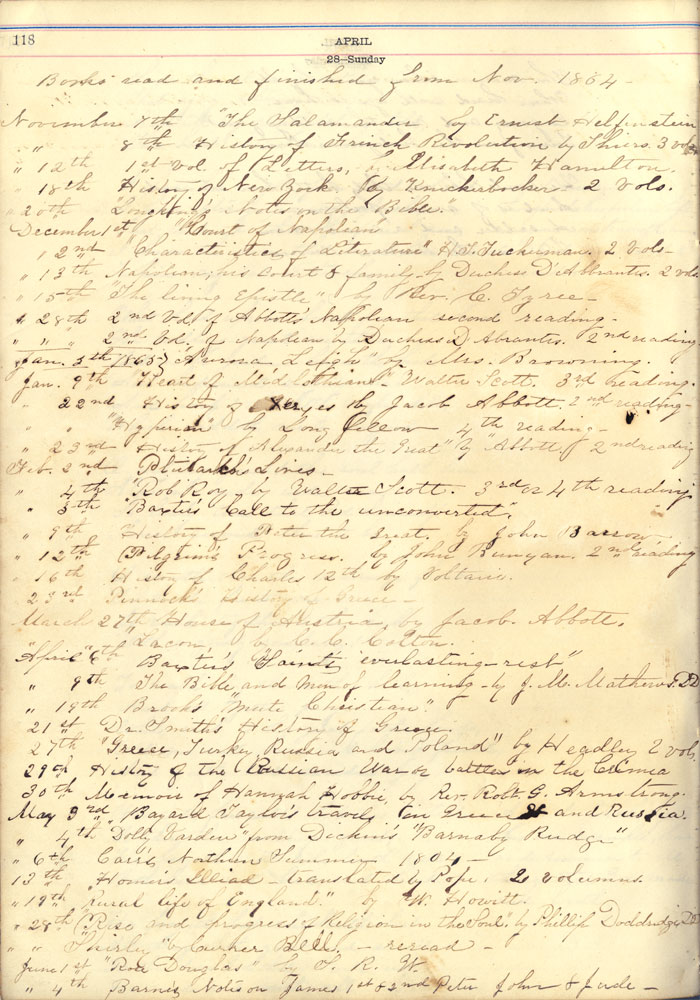 118
APRIL
28—Sunday
Books read and finished from Nov. 1864 -
November 7th "The Salamander by Ernest Helfenstein
" 8th History of French Revolution by Thiers. 3 vols
" 12th 1st Vol of Letters, by Elisabeth Hamilton.
" 18th History of New York By Knickerbocker - 2 Vols.
" 20th Notes on the Bible."
December 1st "Court of Napolean
" 2nd "Characteristics of Literature" H.T. Tuckerman. 2 Vols-
" 13th Napolean, his court & family by Duchess D'Abrantes. 2 vols
" 15th "The living Epistle" by Rev. C. Tyree -
" 28th 2nd Vol. of Abbott's Napolean second reading -
" " " 2nd Vol. of Napolean by Duchess D'Abrantes. 2nd reading
Jan. 5th 1865 } Aurora Leigh by Mrs. Browning.
Jan. 9th Heart of Mid Lothian - Walter Scott. 3rd reading.
22nd History of Xerxes by Jacob Abbott. 2nd reading -
" "Hyperian" by Longfellow 4th reading -
" 23rd History of Alexander the Great" by "Abbott" 2nd reading
Feb. 2nd Plutarch's Lives -
" 4th "Rob Roy" by Walter Scott. 3rd or 4th reading
" 5th Baxter's "Call to the unconverted".
" 9th History of Peter the Great. by John Barrow -
" 12th Pilgrim's Progress. by John Bunyan. 2nd reading
" 16th History of Charles 12th by Voltaire.
" 23rd Pinnock's History of Greece -
March 27th House of Austria, by Jacob. Abbott.
"Lacon, by C. C. Colton.
"April" 6th Baxter's "Saint's everlasting - rest"
" 9th The Bible and Men of learning - by J. M. Mathews. DD
" 19th Brook's "Mute Christian"
21st Dr. Smith's History of Greece
27th "Greece, Turkey, Russia and Poland" by Headley 2 vols.
29th History of the Russian War or battles in the Crimea
30th Memoir of Hannah Hobbie, by Rev. Robt. G. Armstrong.
May 3rd, Bayard Taylor's travels in Greece and Russia.
" 4th "Dolly Varden" from Dickin's "Barnaby Rudge"
" 6th Carr's Northern Summer 1804 -
13th Homer's Illiad - translated by Pope. 2 volumns.
" 19th "rural life of England." by W. Howitt.
" 28th (Rise and progress of Religion in the Soul" by Phillip Doddridge DD
" " "Shirley" by Currer Bell - reread -
June 1st "Rose Douglas" by S. R. W.
" 4th Barnes Notes on James 1st & 2nd Peter John & Jude -